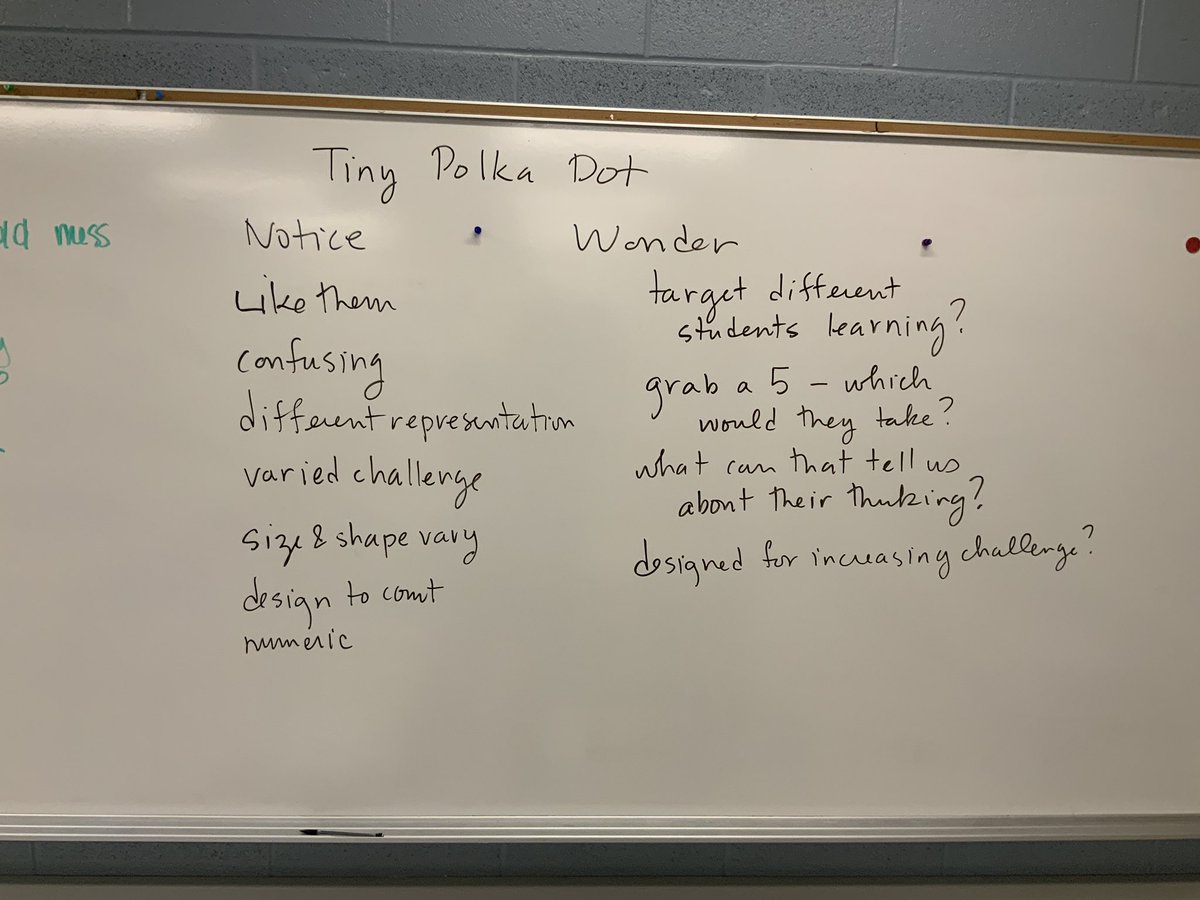 Tiny Polka Dot
Notice
Like them
confusing
different representation
varied challenge
size & shape vary
design to count
numeric
Wonder
target different
students learning?
grab a 5 – which
would they take?
what can that tell us
about their thinking?
designed for increasing challenge?
mess